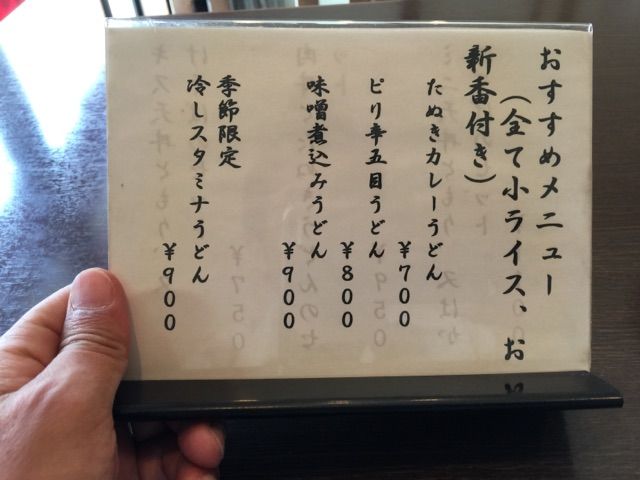 おすすめメニュー
(全て小ライス、お
新番付き)
たぬきカレーうどん
¥700
ピリ辛五目うどん
¥800
味噌煮込みうどん
¥900
季節限定
冷しスタミナうどん
¥900